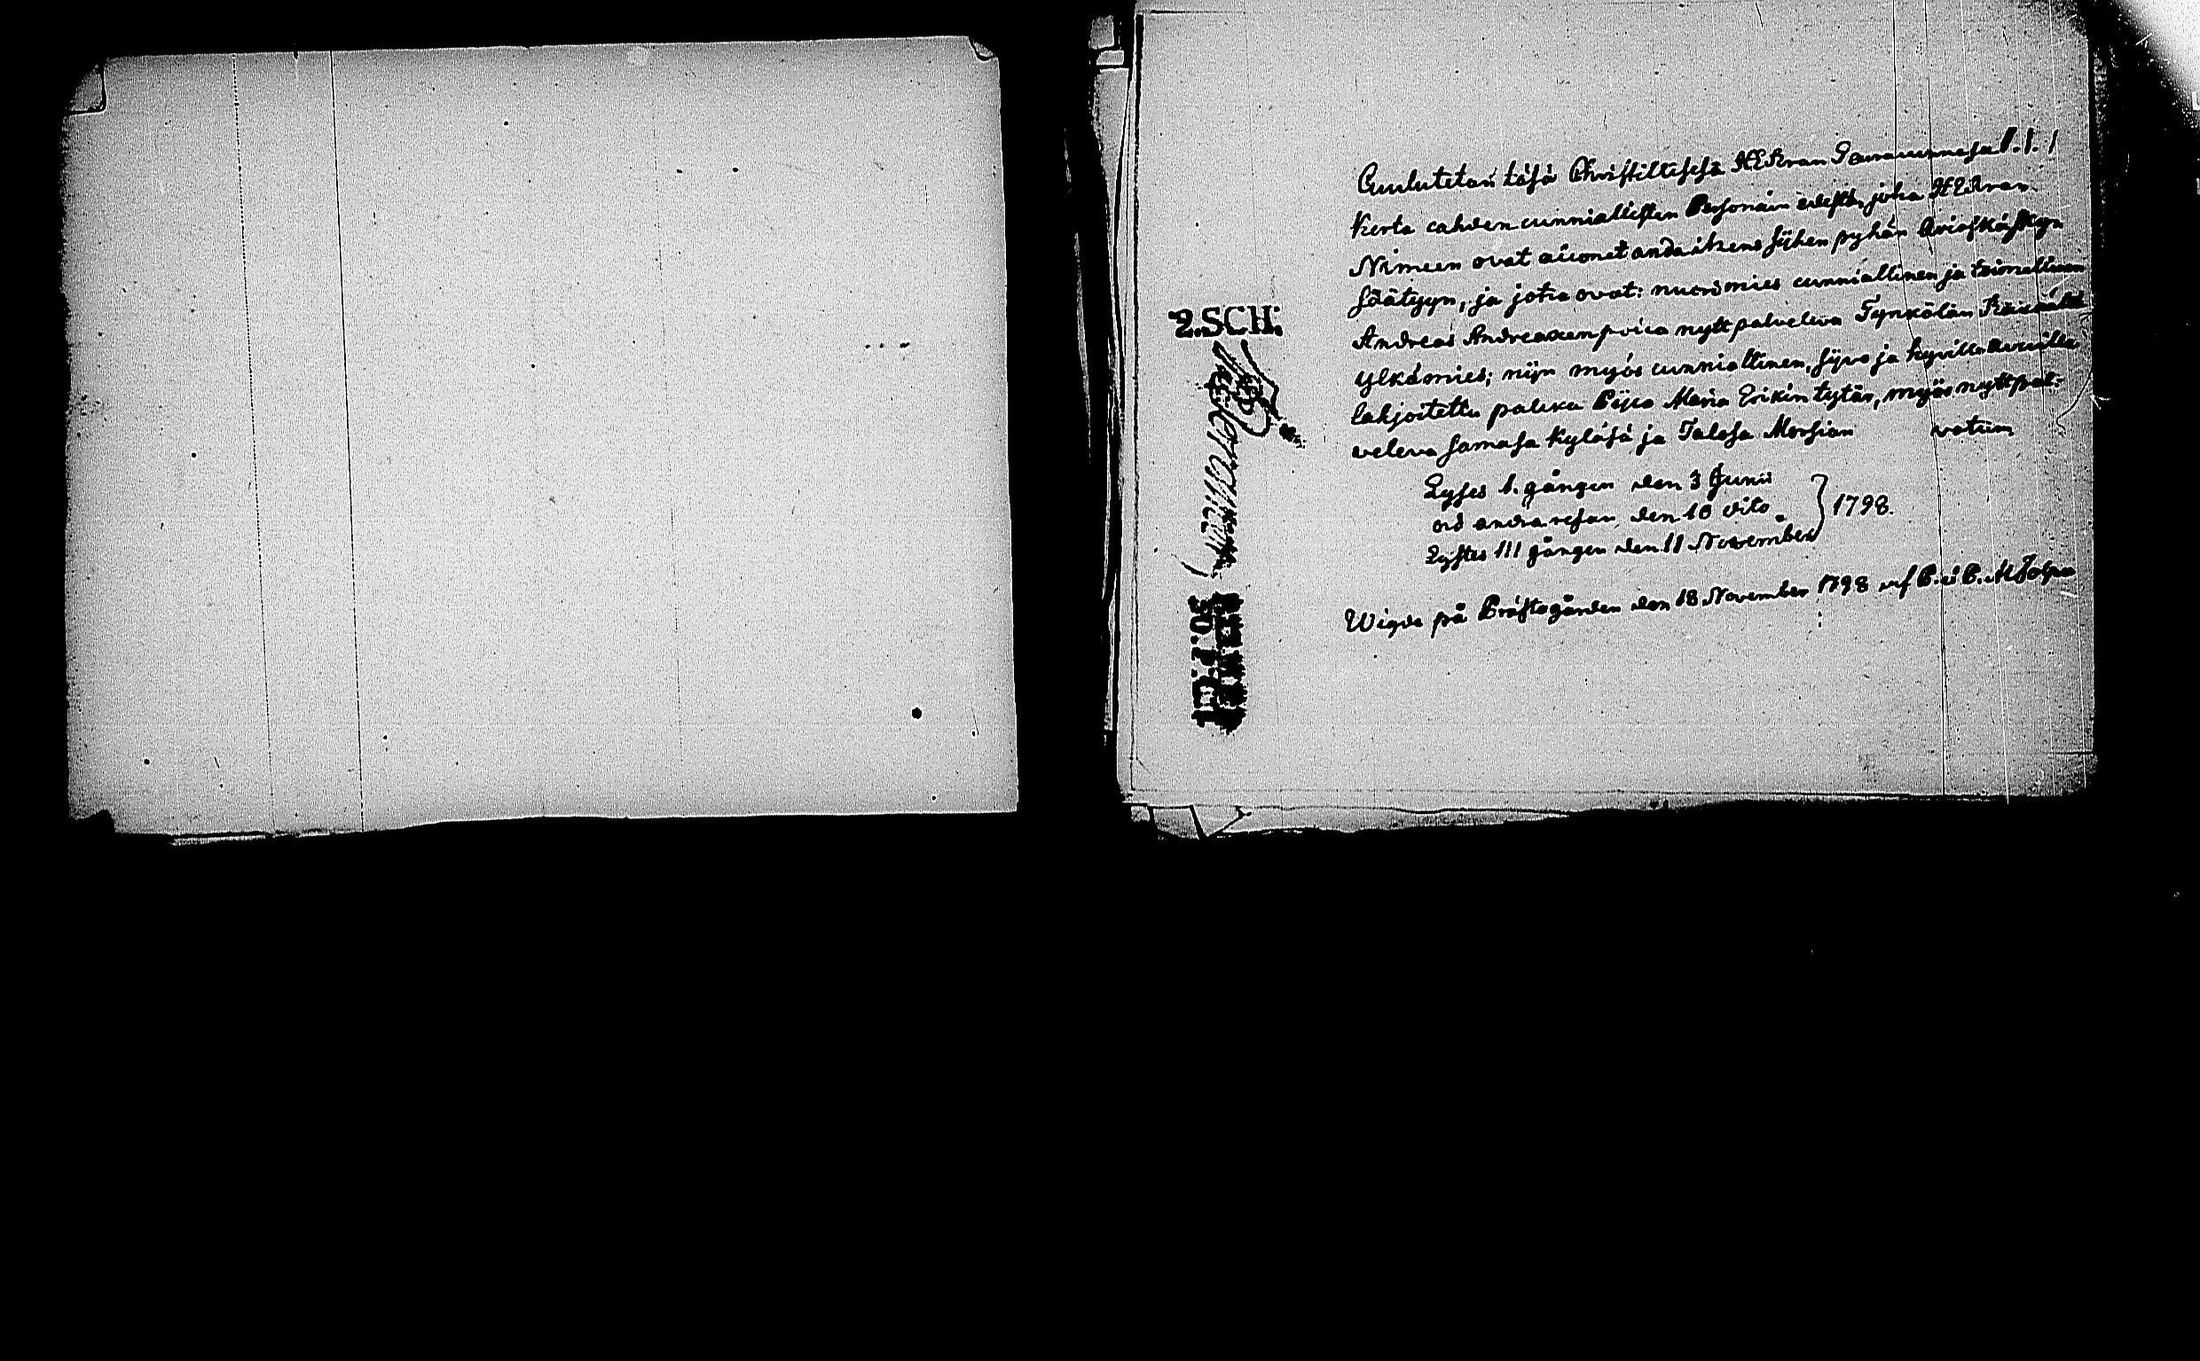 Cuulutetan täsä Christillisesä HERran Seuracunnasa 1.1.1
Kerta cahden cunniallisten Personain edestä, jotca HERran
Nimeen ovat aiconet anda itzens sijhen pyhän Avioskäskyn
säätyyn, ja jotca ovat: nuorimies cunniallinen ja toimellinen
Andreas Andreaxenpoica nytt palveleva Tynkölän
Ylkämies; nijn myös cunniallinen, sijvo ja hyvillä avuilla
lahjoitettu palcka Pijca Maria Erikin tytär, myös nytt pal-
veleva samasa Kyläsä ja Talosa Morsian votum
2.SCH.
Lystes 1. gången den 3 Junii
ord andra resan den 10 dito
1798.
Lystes III gången den 11 November
Wigde på Prästegården den 18 November 1798 af